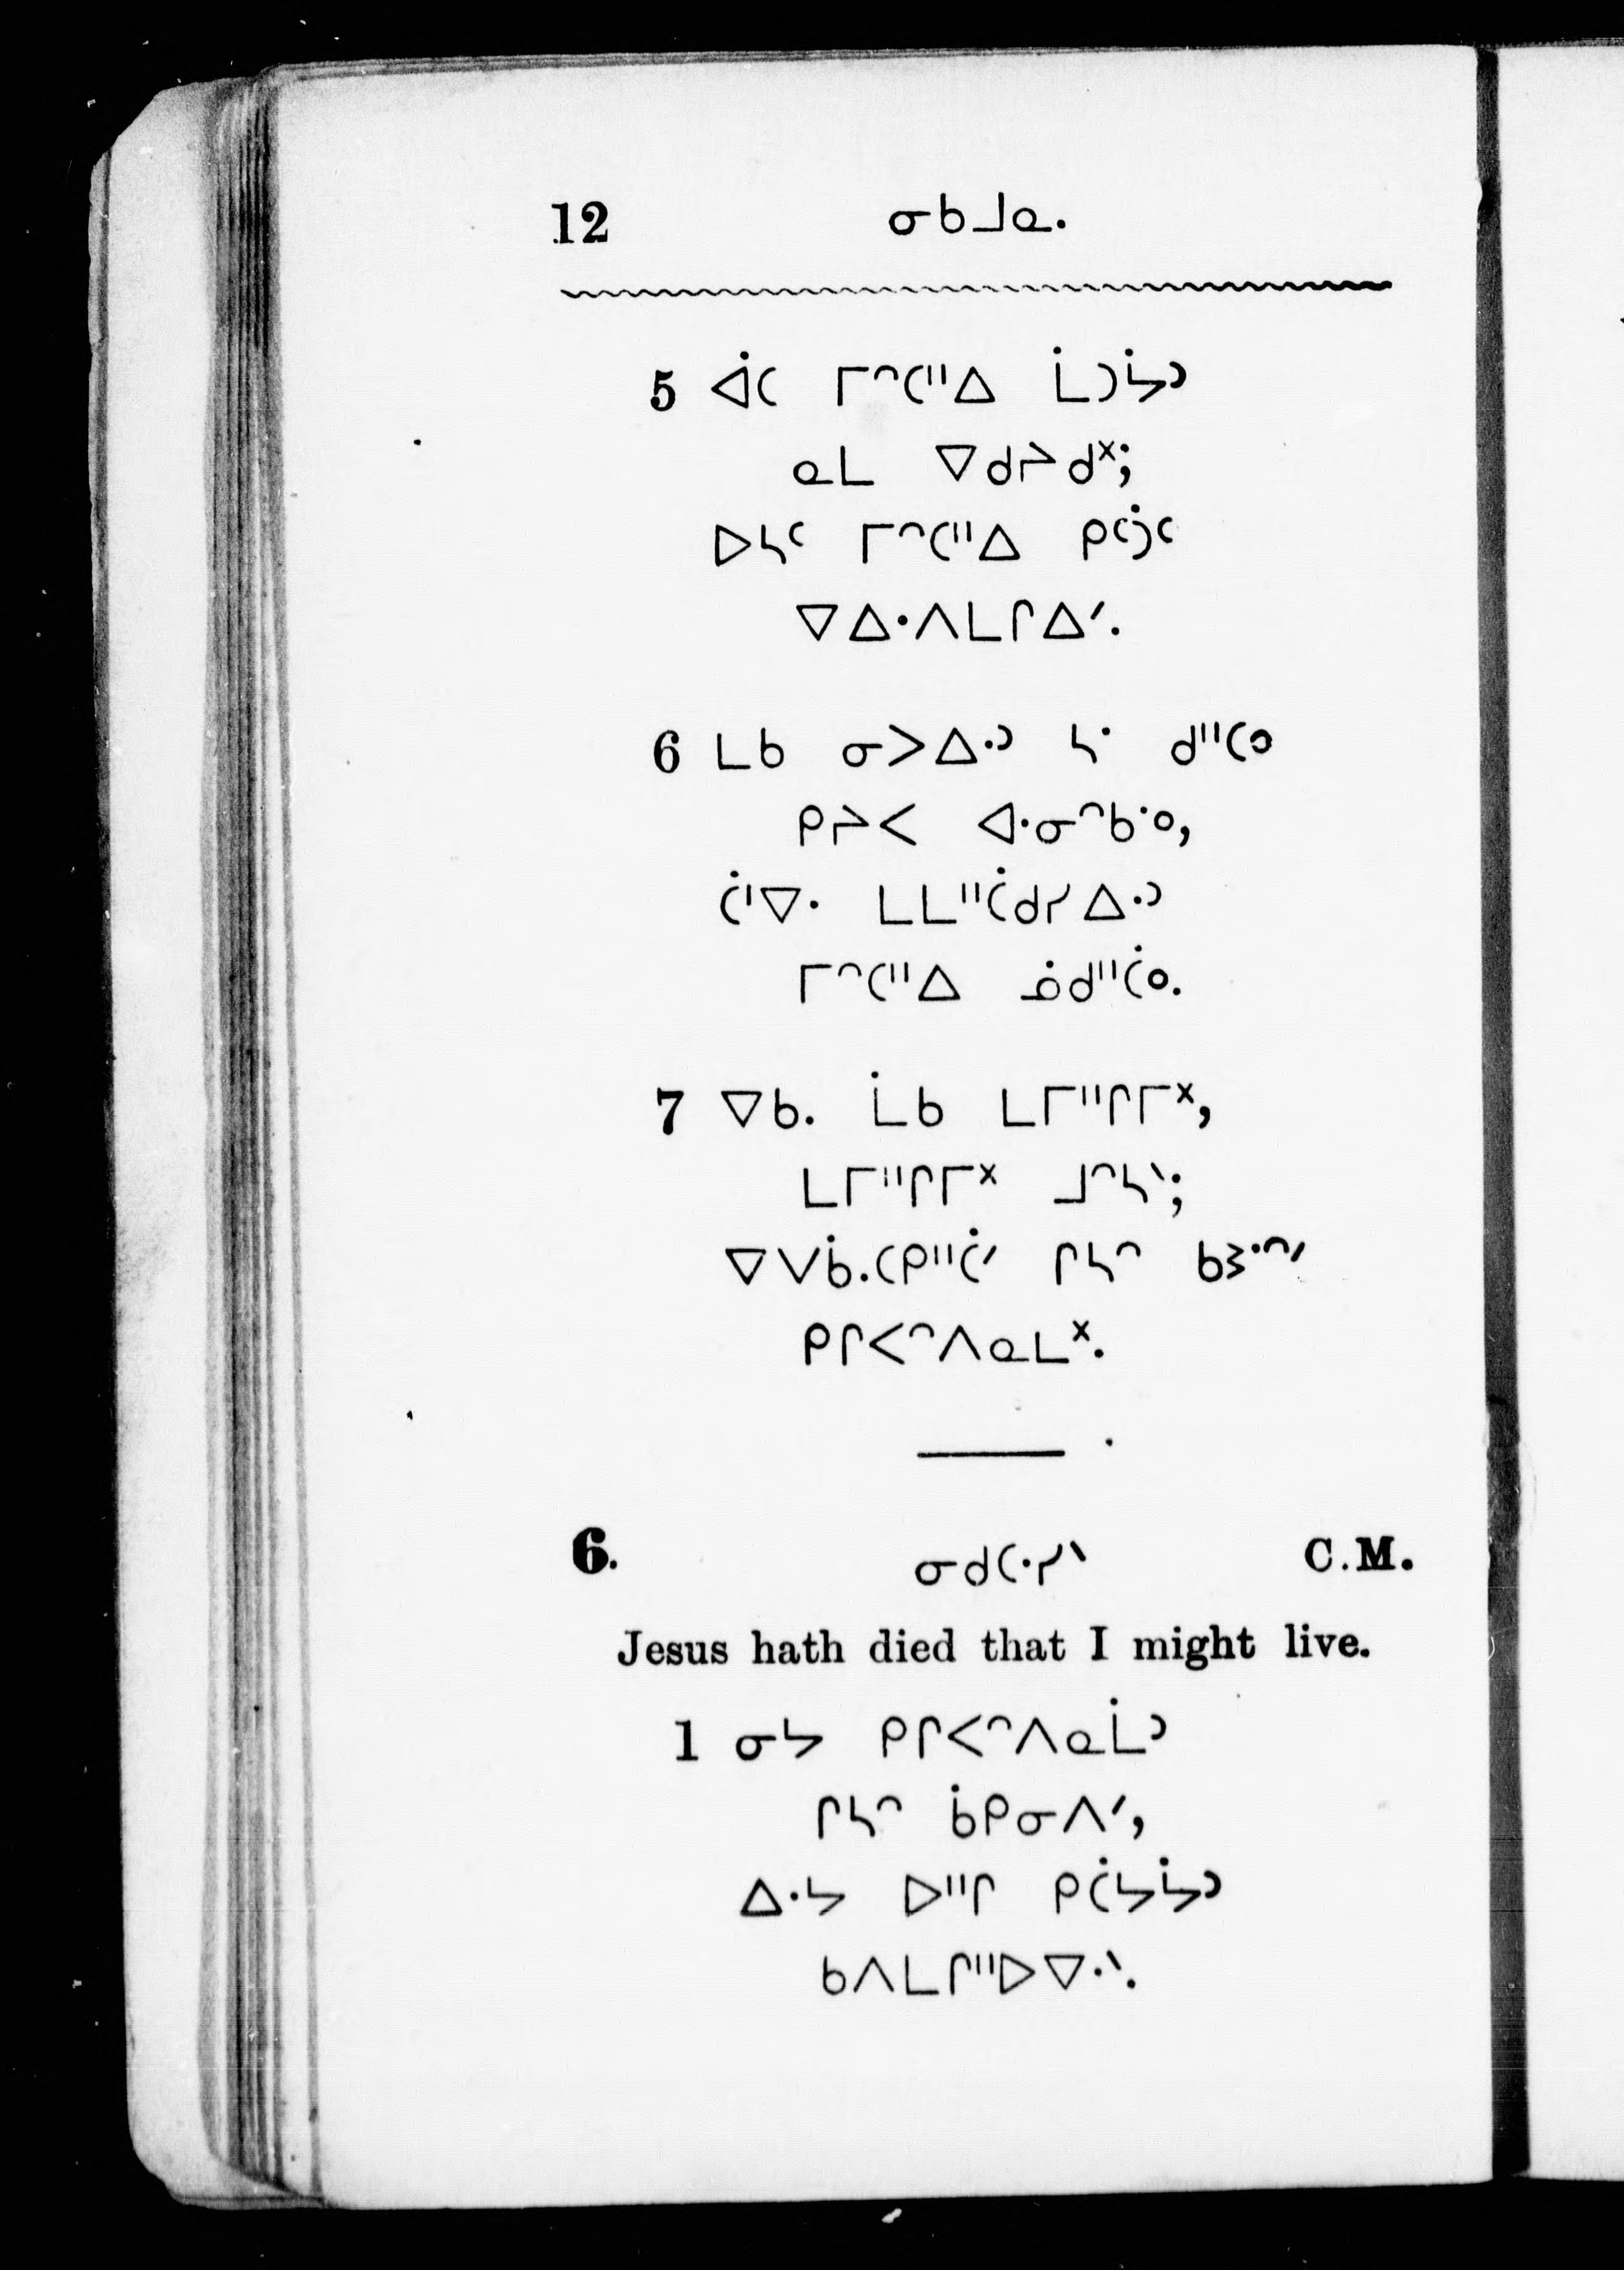 12 ᓂᑲᒧᓇ.
5 ᐋᑕ ᒥᐢᑕᐦᐃ ᒫᑐᔮᐣ
ᓇᒪ ᐁᑯᓯᐳᑯᕽ;
ᐅᓴᑦ ᒥᐢᑕᐦᐃ ᑭᑦᑑᑦ
ᐁᐏᐱᒪᒋᐃᐟ.
6 ᒪᑲ ᓂᐳᐏᐣ ᓴ᛫ ᑯᐦᑕᐤ
ᑭᓯᐸ ᐘᓂᐢᑲ᛫ᐤ,
ᑖᑊᐍ ᒪᒪᐦᑖᑯᓯᐏᐣ
ᒥᐢᑕᐦᐃ ᓅᑯᐦᑖᐤ.
7 ᐁᑲ. ᒫᑲ ᒪᒥᐦᒋᒥᕽ,
ᒪᒥᐦᒋᒥᕽ ᒧᐢᓴᐠ;
ᐁᐯᑳ.ᑕᑭᐦᑖᐟ ᒋᓴᐢ ᑲᕒ᛫ᐢᐟ
ᑭᒋᐸᐢᐱᓇᒪᕽ.
6. ᓂᑯᑕ᛫ᓯᐠ C.M.
Jesus hath died that I might live.
1 ᓂᔭ ᑭᒋᐸᐢᐱᓇᒫᐣ
ᒋᓴᐢ ᑳᑭᓂᐱᐟ,
ᐏᔭ ᐅᐦᒋ ᑭᑖᔭᔮᐣ
ᑲᐱᒪᒋᐦᐅᐍᐠ.